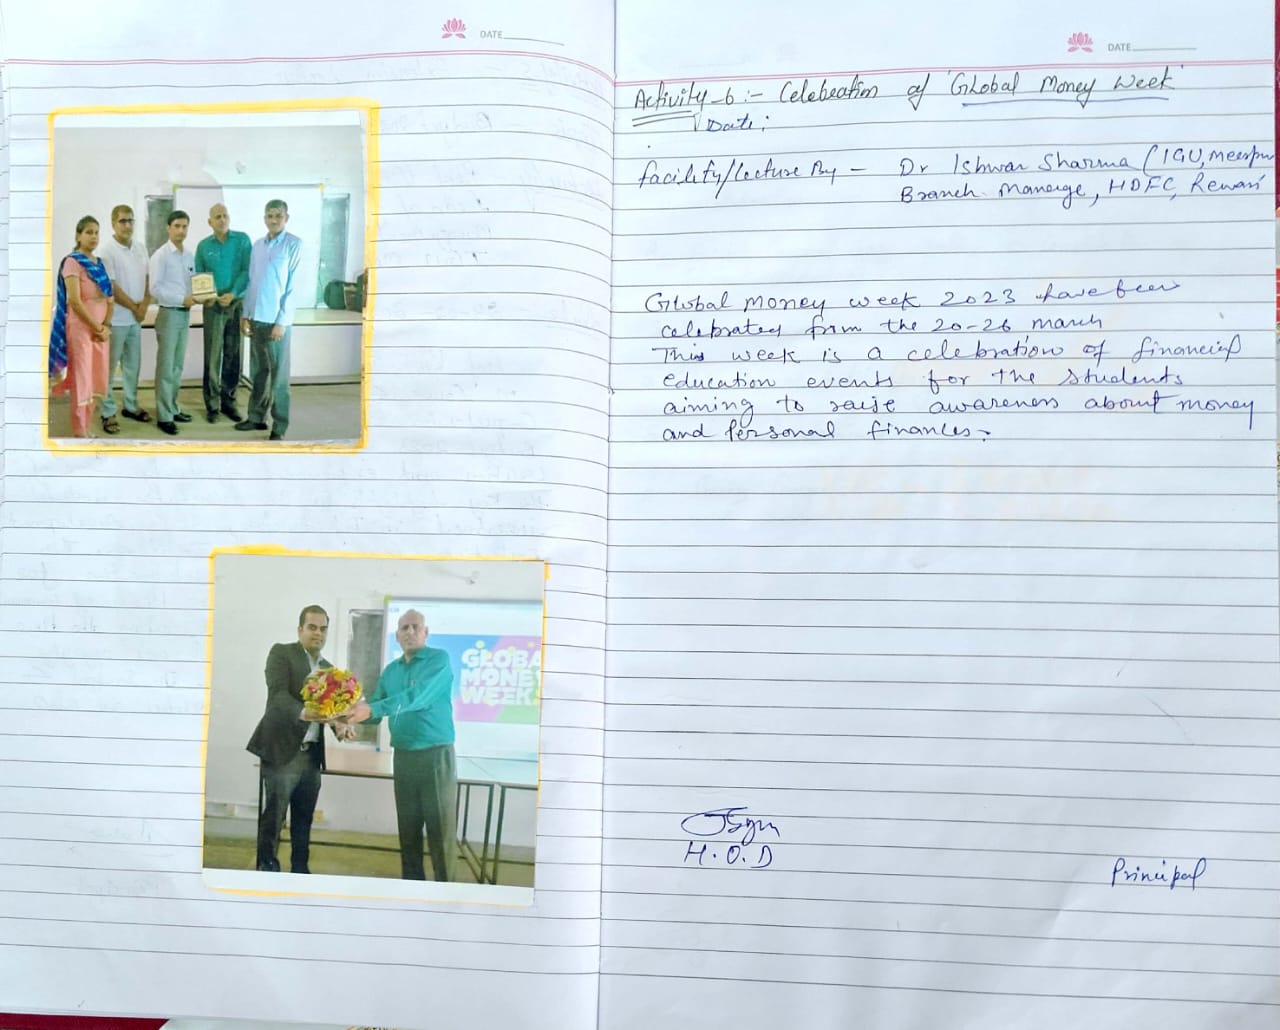 DATE
DATE
Activity-6 :- Celebration of 'Global Money Week'
Date:
facility/Lecture By - Dr Ishwar Sharma (IGU, Meerpur
Branch Manege, HDFC, Rewari
Global Money week 2023 have been
celebrated from the 20-26 march
This week is a celebration of financial
education events for the students
aiming to raise awareness about money
and Personal finances.
GLOBA
MONEY
WEEK
H.O.D
Principal